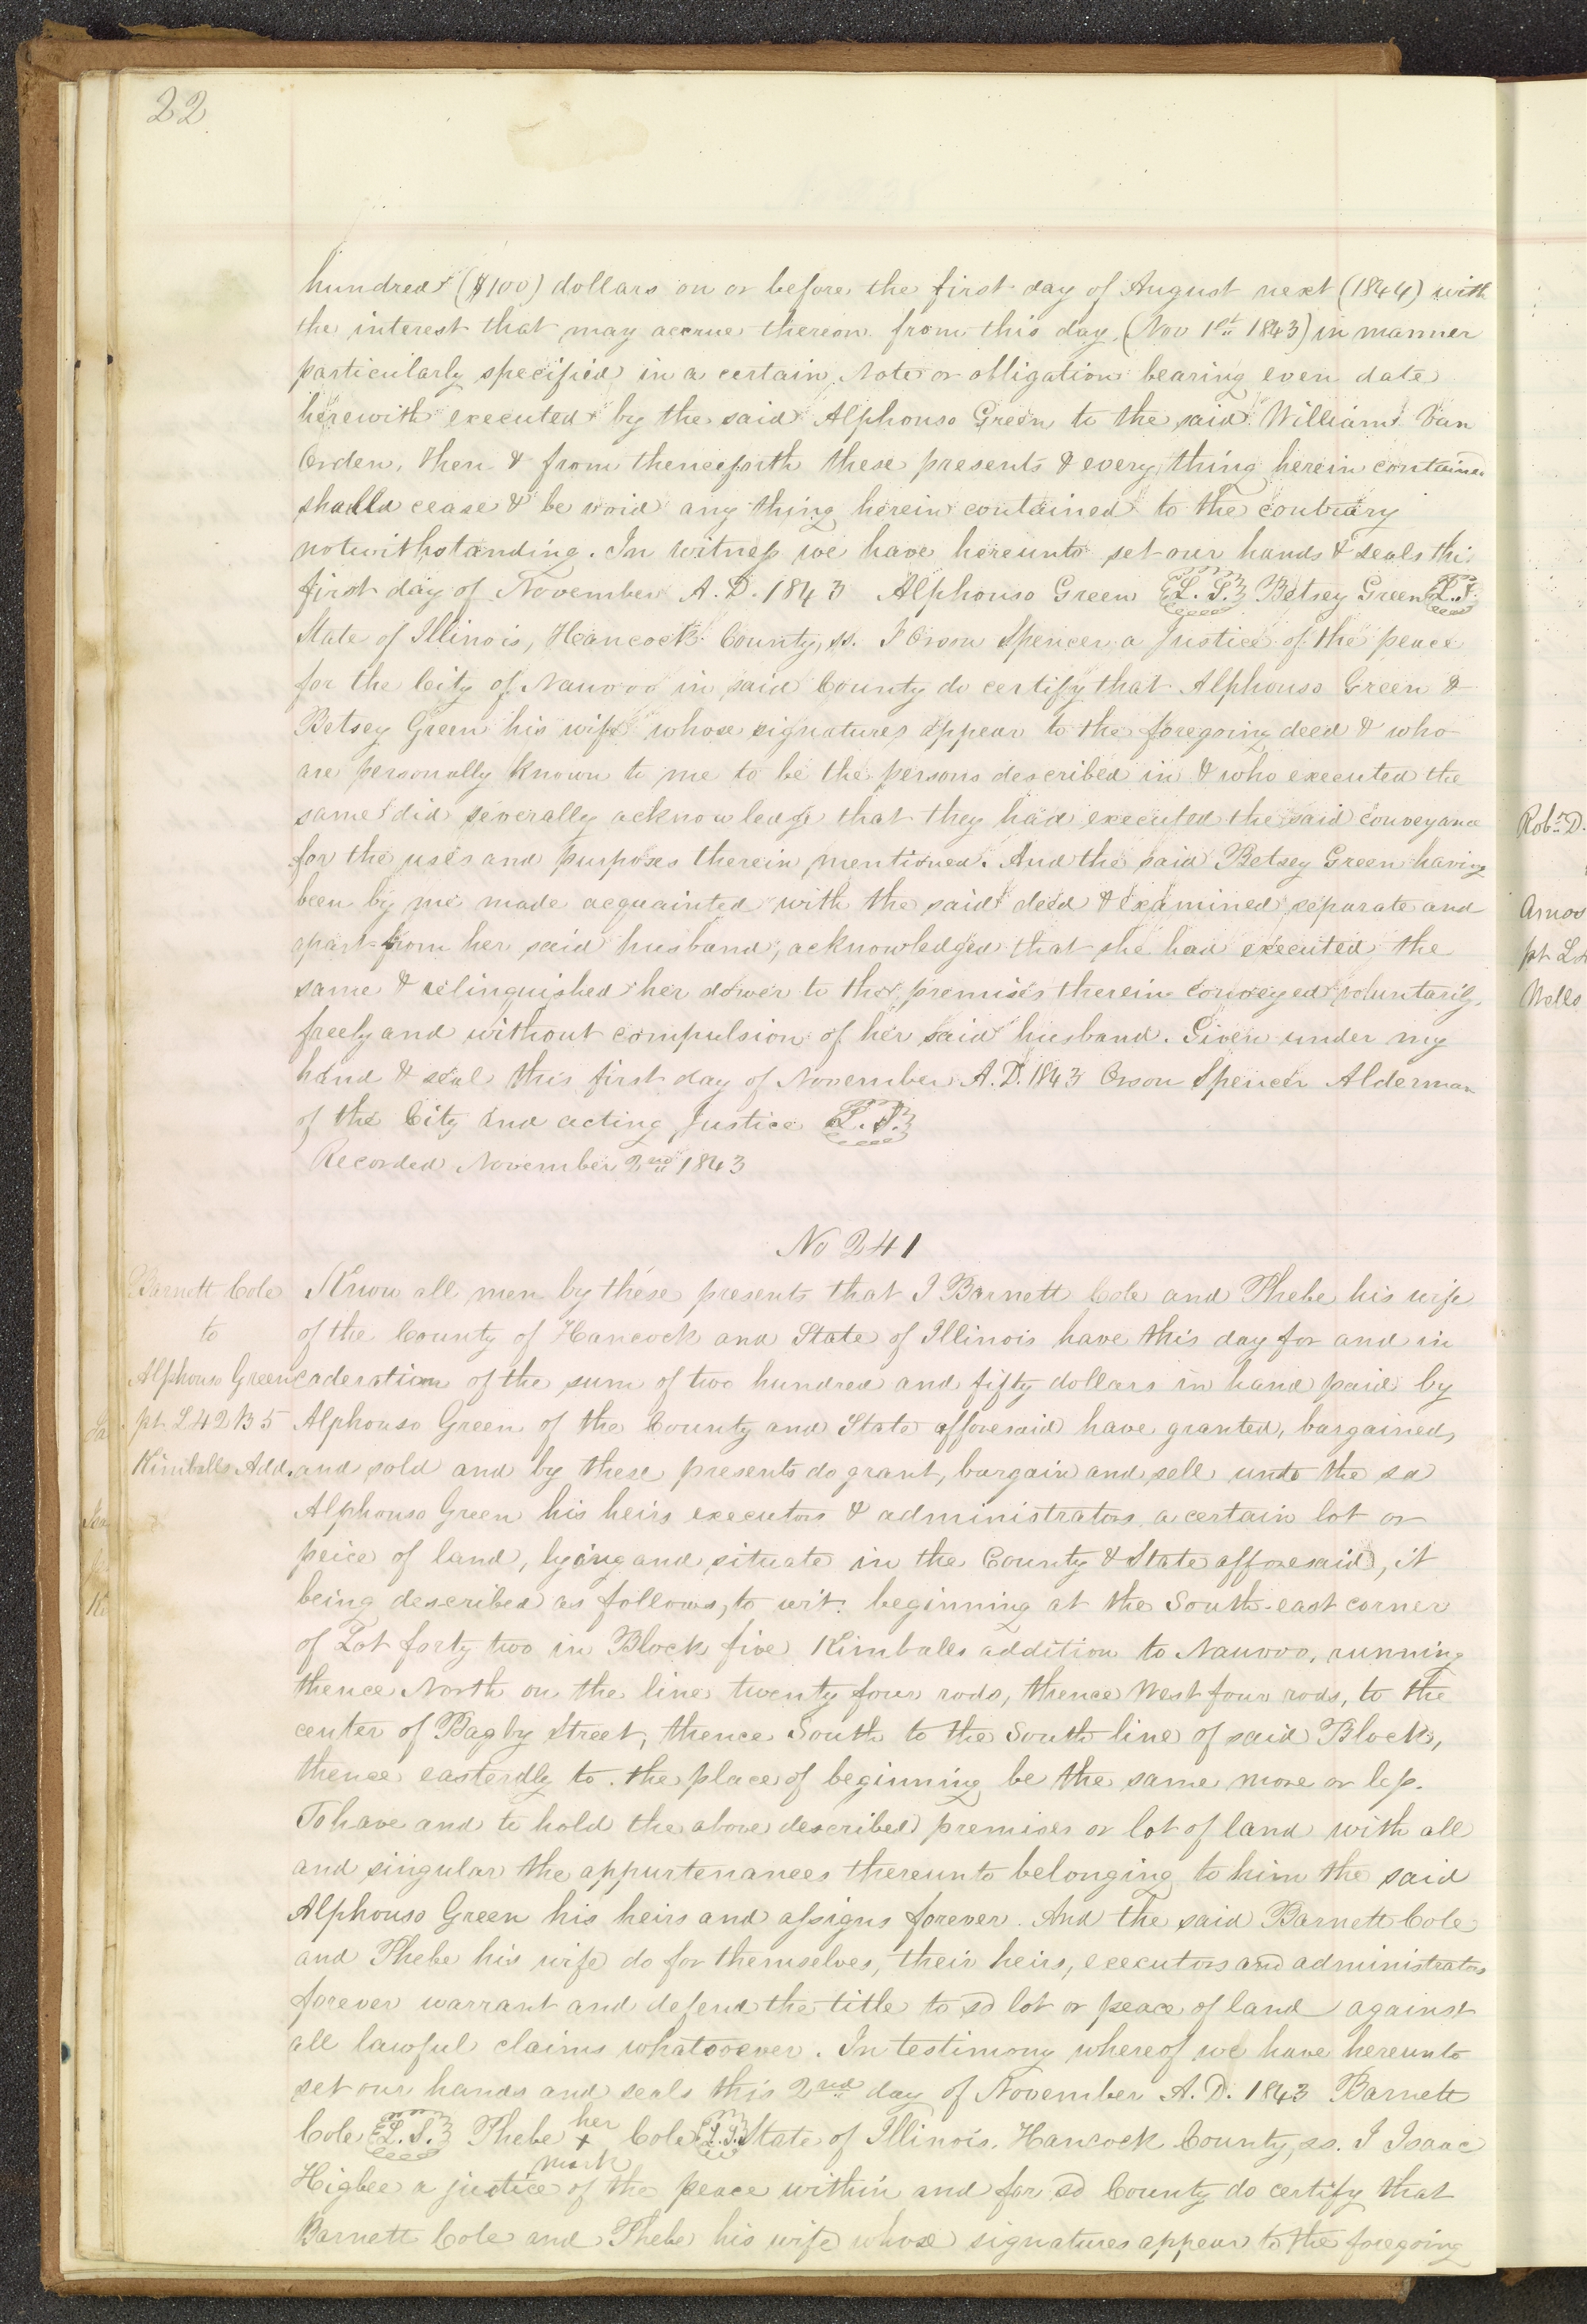 22
hundred ($100) dollars on or before the first day of August next (1844) with
the interest that may accrue thereon from this day, (Nov 1st 1843) in manner
particularly specified in a certain Note or obligation bearing even date
herewith executed by the said Alphonso Green to the said William Van
Orden, then & from thenceforth these presents & every thing herein contained
shall cease & be void any thing herein contained to the contrary
notwithstanding. In witness we have hereunto set our hands & seals this
first day of November A.D. 1843 Alphonso Green L.S. Betsey Green L.S.
State of Illinois, Hancock County, ss. I Orson Spencer a Justice of the peace
for the City of Nauvoo in said County do certify that Alphonso Green &
Betsey Green his wife whose signatures appear to the foregoing deed & who
are personally known to me to be the persons described in & who executed the
same did severally acknowledge that they had executed the said conveyance
for the uses and purposes therein mentioned. And the said Betsey Green having
been by me made acquainted with the said deed & examined separate and
apart from her said husband, acknowledged that she had executed the
same & relinquished her dower to the premises therein conveyed voluntarily,
freely and without compulsion of her said husband. Given under my
hand & seal this first day of November A.D. 1843 Orson Spencer Alderman
of the City and acting Justice L.S.
Recorded November 2nd 1843
No 241
Barnett Cole
to
Alphonso Green
pt L 42 B 5
Kimballs Add.
Know all men by these presents that I Barnett Cole and Phebe his wife
of the County of Hancock and State of Illinois have this day for and in
caderation of the sum of two hundred and fifty dollars in hand paid by
Alphonso Green of the County and State afforesaid have granted, bargained,
and sold and by these presents do grant, bargain and sell unto the sd
Alphonso Green his heirs executors & administrators a certain lot or
peice of land, lying and situate in the County & State afforesaid, it
being described as follows, to wit: beginning at the South-east corner
of Lot forty two in Block five Kimballs addition to Nauvoo, running
thence North on the line twenty four rods, thence West four rods, to the
center of Bagby Street, thence South to the South line of said Block,
thence easterdly to the place of beginning be the same more or less.
To have and to hold the above described premises or lot of land with all
and singular the appurtenances thereunto belonging to him the said
Alphonso Green his heirs and assigns forever. And the said Barnett Cole
and Phebe his wife do for themselves, their heirs, executors and administrators
forever warrant and defend the title to sd lot or peace of land against
all lawful claims whatsoever. In testimony whereof we have hereunto
set our hands and seals this 2nd day of November A.D. 1843 Barnett
Cole L.S. Phebe her x mark Cole L.S. State of Illinois, Hancock County, ss. I Isaac
Higbee a justice of the peace within and for sd County do certify that
Barnett Cole and Phebe his wife whose signatures appear to the foregoing
Robt D.
Amos
pt L
Wells